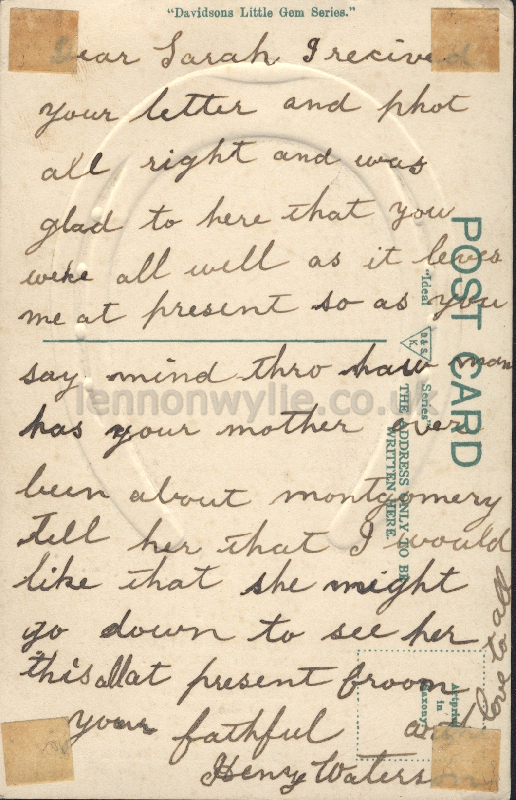 "Davidsons Little Gem Series."
Dear Sarah I recived
your letter and phot
all right and was
glad to here that you
weke all well as it leves
me at present so as you
say mind thro haw man
has your mother ever
been about montgomery
tell her that I would
like that she might
go down to see her
this all at present froom
your fathful and
Heny Waters
Love to all
POST CARD
"Ideal
D & S.
K.
Series"
THE ADDRESS ONLY TO BE
WRITTEN HERE.
in
Saxony
lennonwylie.co.uk